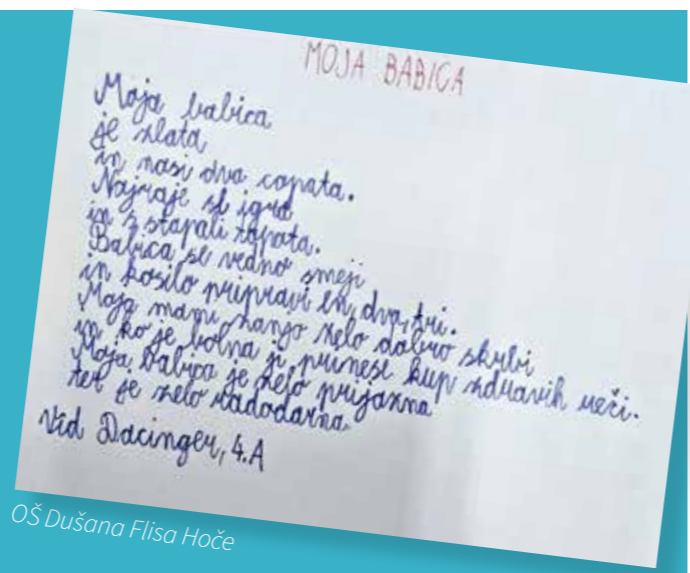 MOJA BABICA
Moja babica
je zlata
in nosi dva copata.
Najraje se igra
in s stopali ropota.
Babica se vedno smeji
in kosilo pripravi en, dva, tri.
Moja mami zanjo zelo dobro skrbi
in ko je bolna ji prinese kup zdravih reči.
Moja babica je zelo prijazna
ter je zelo radodarna.
Vid Dacinger, 4.A
OŠ Dušana Flisa Hoče